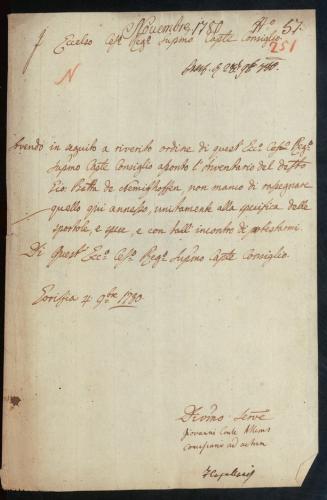 Novembre 1780 N.° 57.
251
Eccelso Ces.° Reg.° Supmo Captle Consiglio
N
Avendo in seguito a riverito ordine di quest' Ecc.° Ces.° Reg.°
Supmo Captle Consiglio aperto l'inventario del
de Remighoffen, non manco di rassegnare
quello qui annesso, unitamente alla specifica delle
sportole, e spese, e con tall' incontro di protestarmi
Di Quest' Ecc.° Ces.° Reg.° Supmo Captle Consiglio.
Gorizia 4 9bre 1780
Devmo Serve
Giovanni Conte Attems
Comissario ad actum